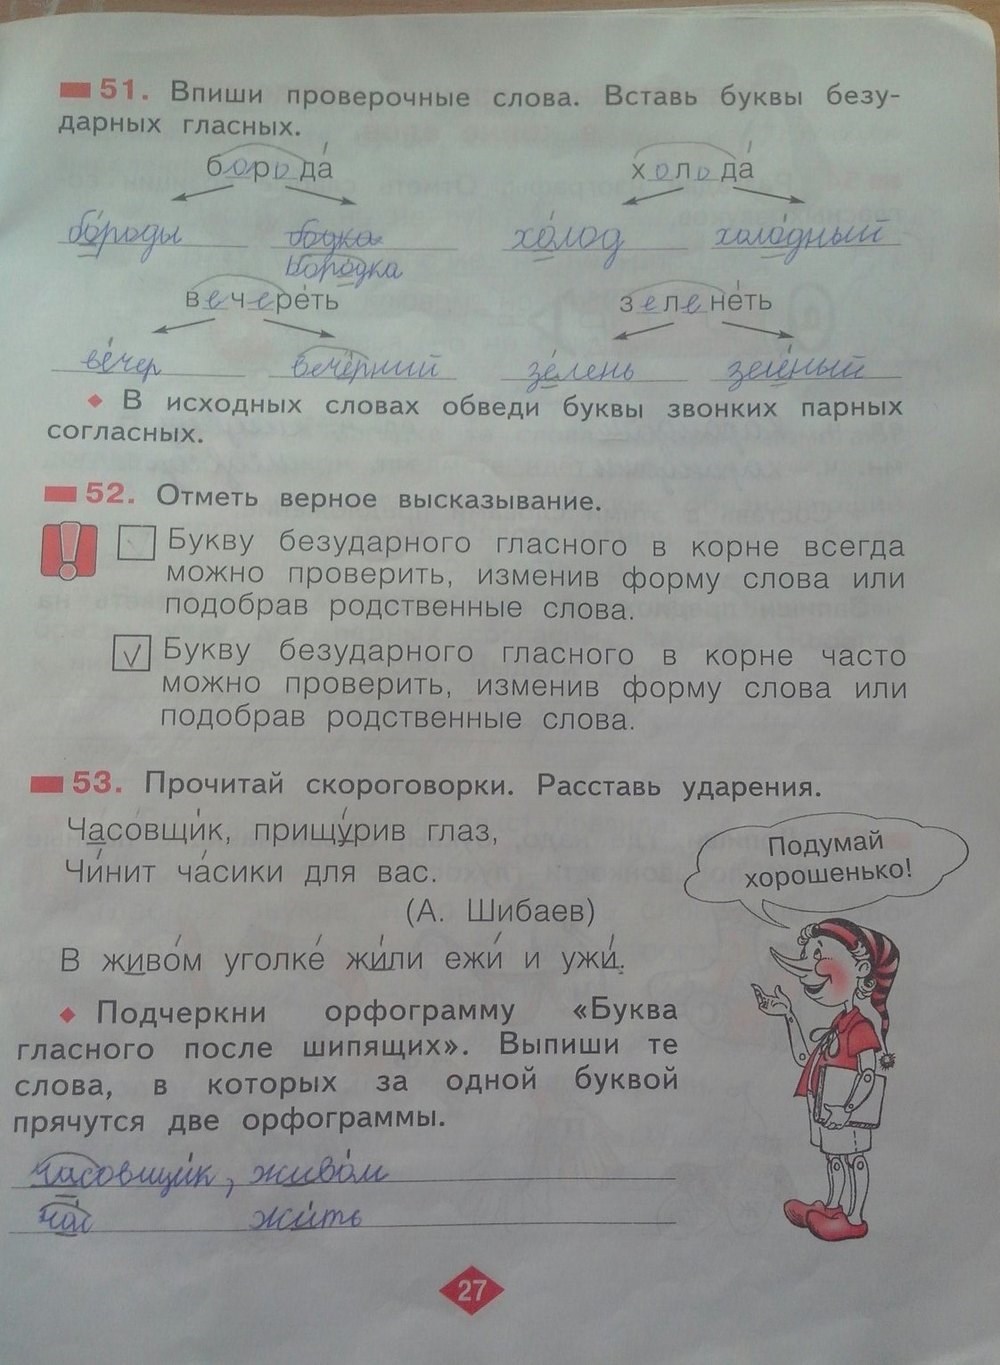 51. Впиши проверочные слова. Вставь буквы безу-
дарных гласных.
борода́ холода́
бо́роды бодка хо́лод холо́дный
боро́дка
вечере́ть зелене́ть
ве́чер вече́рний зе́лень зелёный
♦ В исходных словах обведи буквы звонких парных
согласных.
52. Отметь верное высказывание.
Букву безударного гласного в корне всегда
можно проверить, изменив форму слова или
подобрав родственные слова.
√ Букву безударного гласного в корне часто
можно проверить, изменив форму слова или
подобрав родственные слова.
53. Прочитай скороговорки. Расставь ударения.
Часовщи́к, прищу́рив глаз,
Чи́нит ча́сики для вас.
(А. Шибаев)
В живо́м уголке́ жи́ли ежи́ и ужи́.
Подумай
хорошенько!
♦ Подчеркни орфограмму «Буква
гласного после шипящих». Выпиши те
слова, в которых за одной буквой
прячутся две орфограммы.
часовщи́к, живо́м
час жи́ть
27